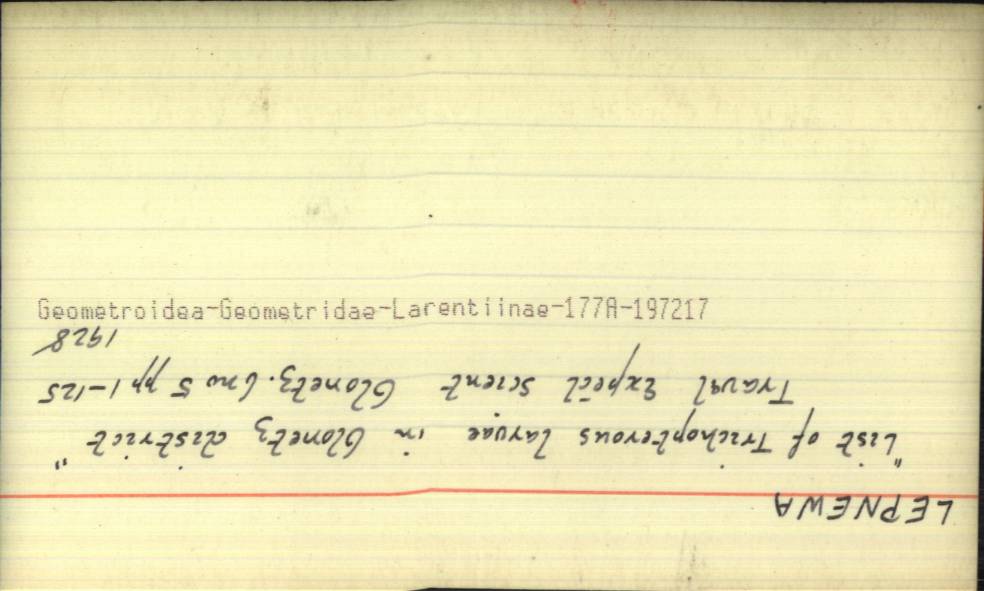 Geometroidea-Geometridae-Larentiinae-177A-197217
LEPNEWA
"List of Trichopterous larvae in Olonetz district"
Traval Expéd scient Olonetz. 6 no 5 pp 1-125
1928